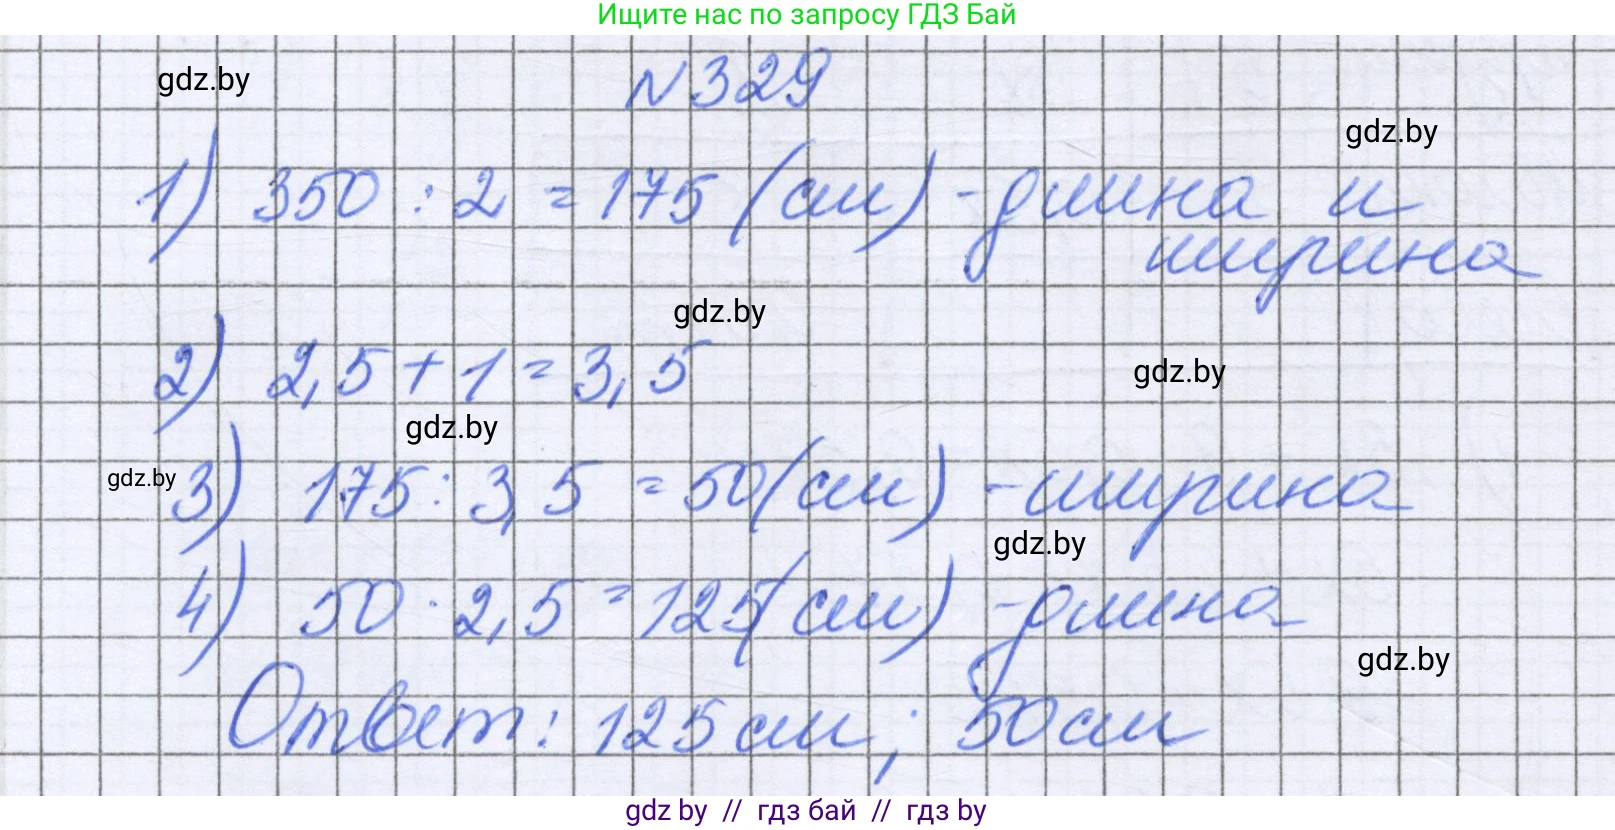 Ищите нас по запросу ГДЗ Бай
N329
gdz.by
gdz.by
1) 350 : 2 = 175 (см) - длина и
ширина
gdz.by
2) 2,5 + 1 = 3,5
gdz.by
gdz.by
gdz.by
3) 175 : 3,5 = 50 (см) - ширина
gdz.by
4) 50 · 2,5 = 125 (см) - длина
gdz.by
Ответ: 125 см; 50 см
gdz by // гдз бай // гдз by